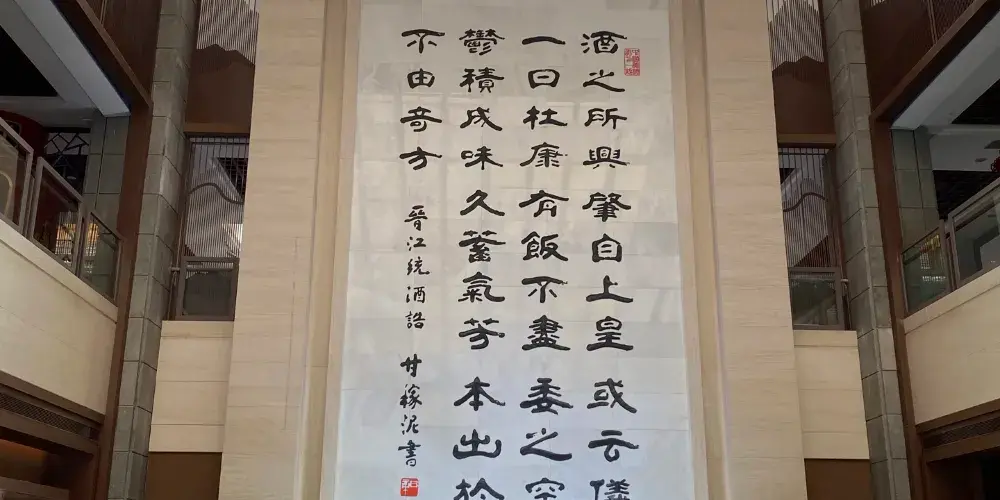 酒之所興肇自上皇或云儀
一曰杜康有飯不盡委之空
鬱積成味久蓄氣芳本出於
不由奇方 晉江統酒誥 甘稼泥書